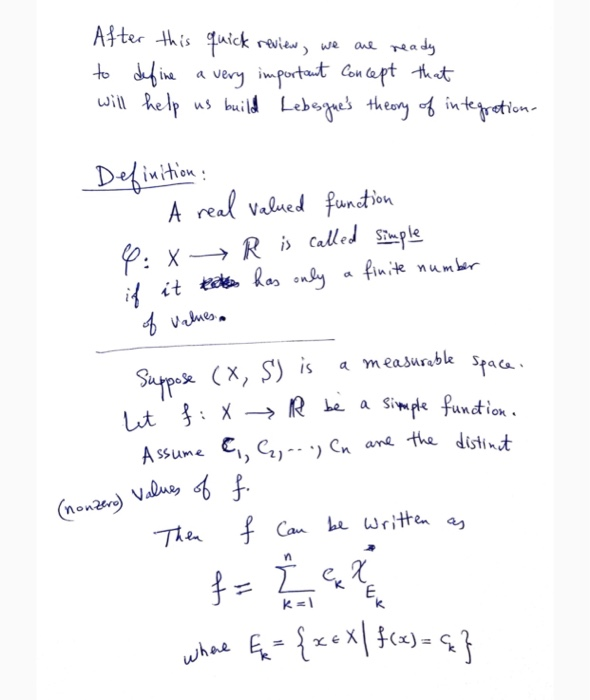 After this quick review, we are ready
to define a very important concept that
will help us build Lebesgue's theory of integration.
Definition:
A real valued function
φ: X → ℝ is called simple
if it has only a finite number
of values.
Suppose (X, S) is a measurable space.
Let f: X → ℝ be a simple function.
Assume C₁, C₂, ..., Cn are the distinct
(nonzero) values of f.
Then f can be written as
f = Σ_{k=1}^{n} c_k χ_{E_k}
where E_k = {x ∈ X | f(x) = c_k}